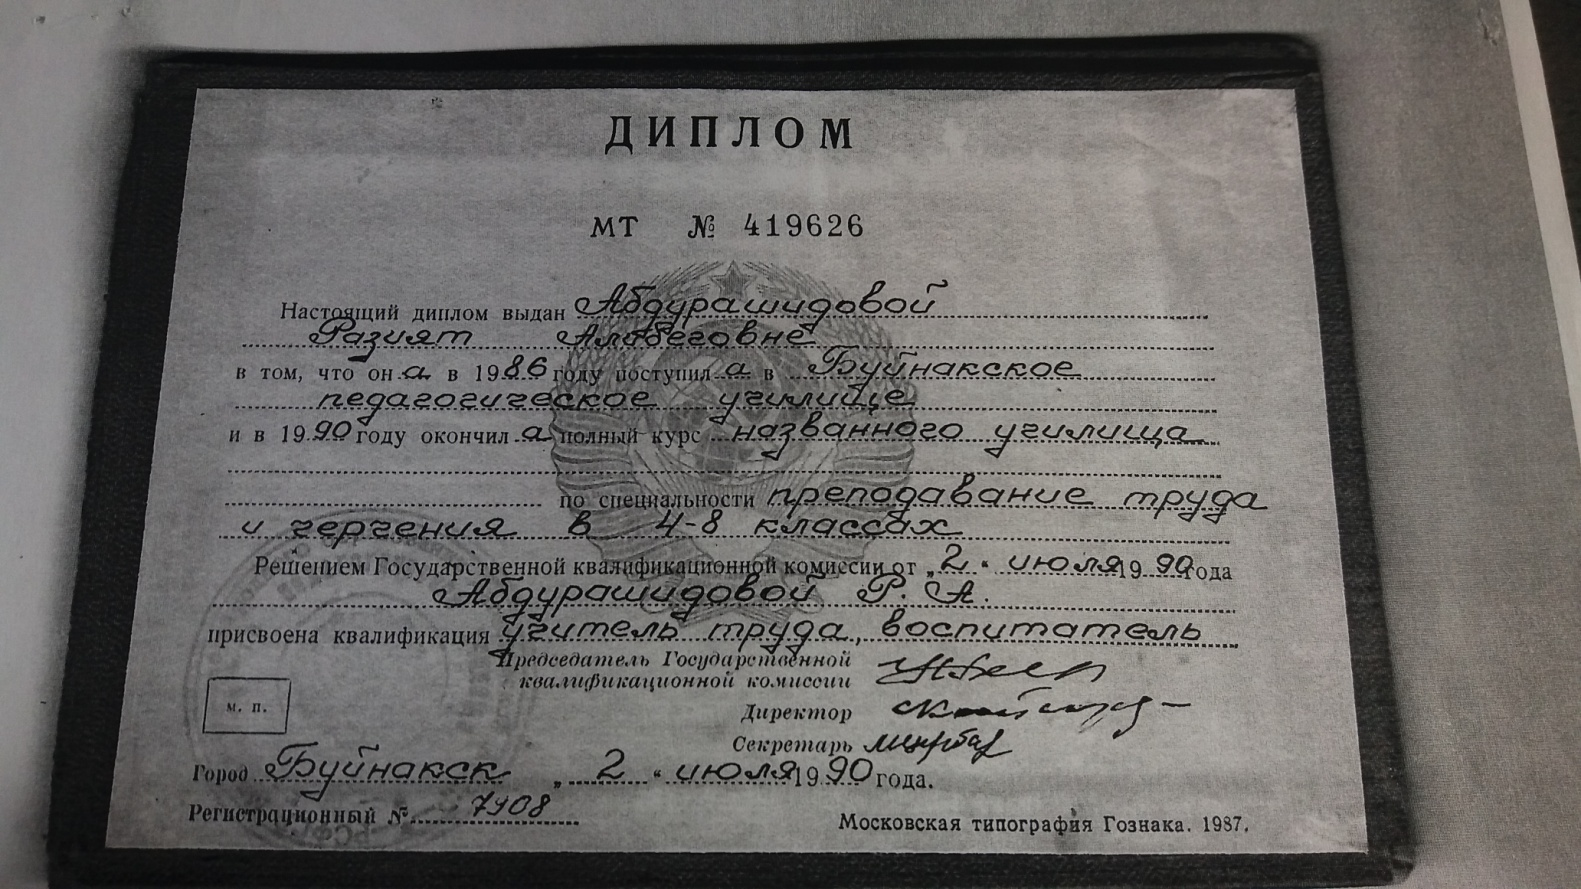 ДИПЛОМ
МТ № 419626
Настоящий диплом выдан Абдурашидовой
Разият Алибеговне
в том, что он а в 1986 году поступил а в Буйнакское
педагогическое училище
и в 1990 году окончил а полный курс названного училища
по специальности преподавание труда
и черчения в 4-8 классах
Решением Государственной квалификационной комиссии от „2“ июля 1990 года
Абдурашидовой Р. А.
присвоена квалификация учитель труда, воспитатель
Председатель Государственной
квалификационной комиссии
Директор
Секретарь
м. п.
Город Буйнакск „2“ июля 1990 года.
Регистрационный № 7408
Московская типография Гознака. 1987.